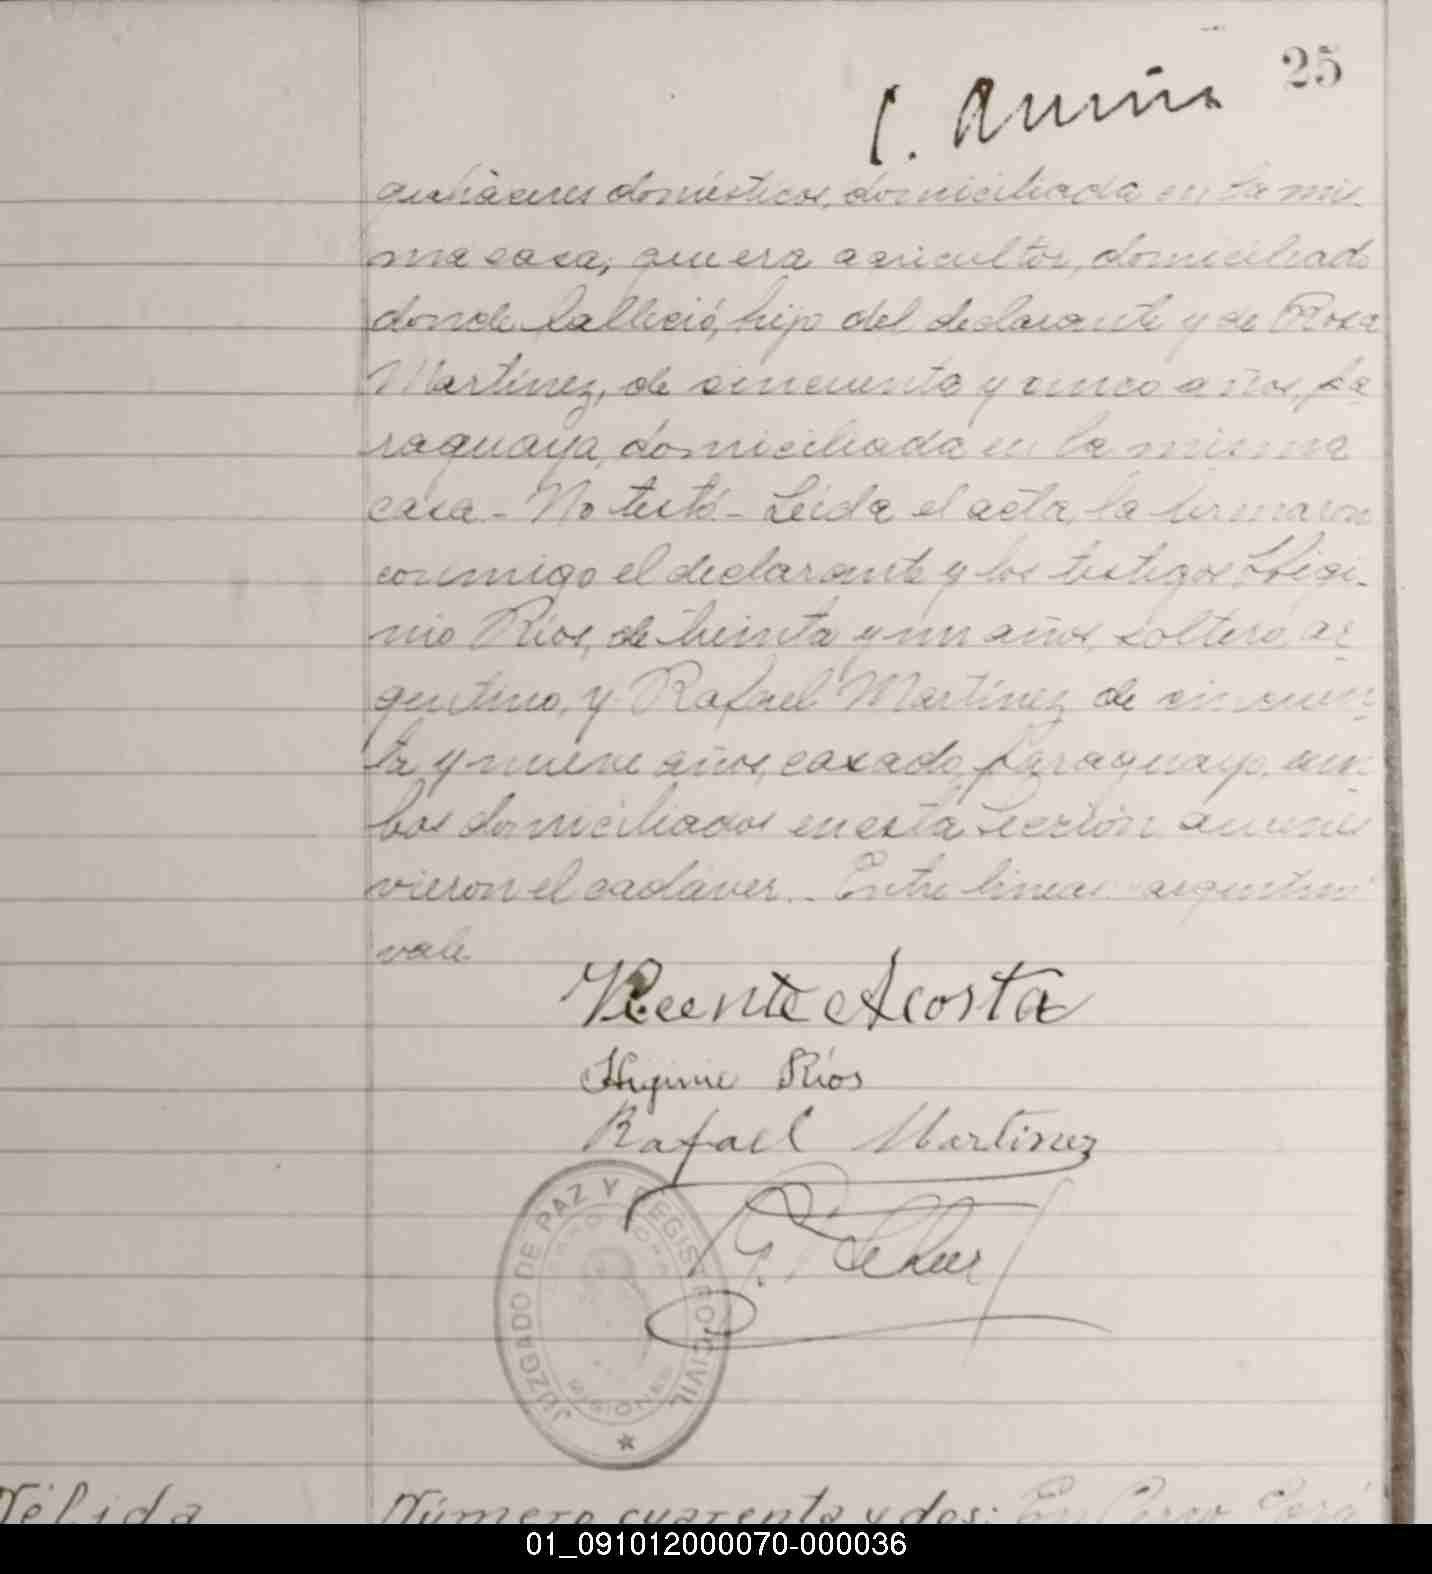 25
quehaceres domésticos, domiciliada en la mis-
ma casa; que era agricultor, domiciliado
donde falleció, hijo del declarante y de Rosa
Martínez, de cincuenta y cinco años, pa
raguaya, domiciliada en la misma
casa. - No testó - Leída el acta, la firmaron
conmigo el declarante y los testigos Higi-
nio Ríos, de treinta y un años, soltero, ar
gentino, y Rafael Martínez de cincuen
ta y nueve años, casado, paraguayo, am-
bos domiciliados en esta sección quienes
vieron el cadáver.. Entre líneas: argentino
vale
Vicente Acosta
Higinio Ríos
Rafael Martinez
JUZGADO DE PAZ Y REGISTRO CIVIL
CERRO CORÁ
MISIONES
Nélida
Número cuarenta y dos: En Cerro Corá
01_091012000070-000036